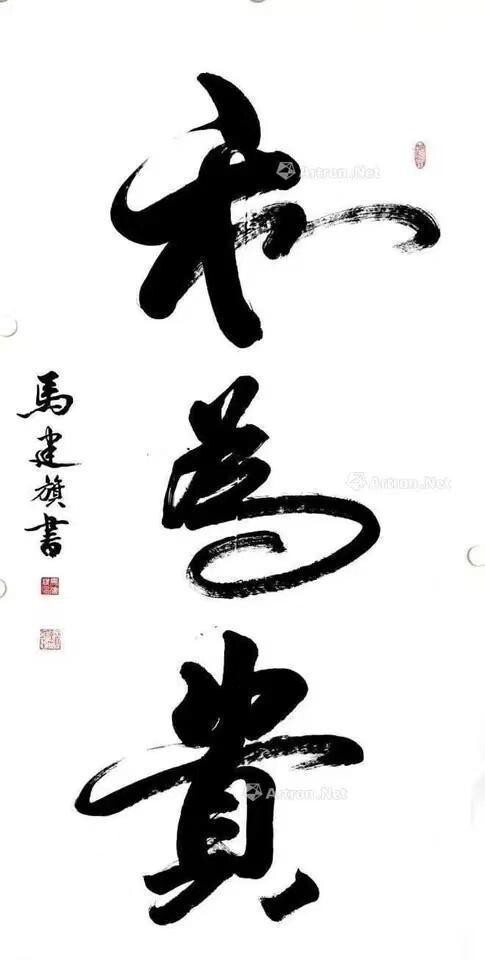 和為貴
馬建旗書
Artron.Net
Artron.Net
Artron.Net